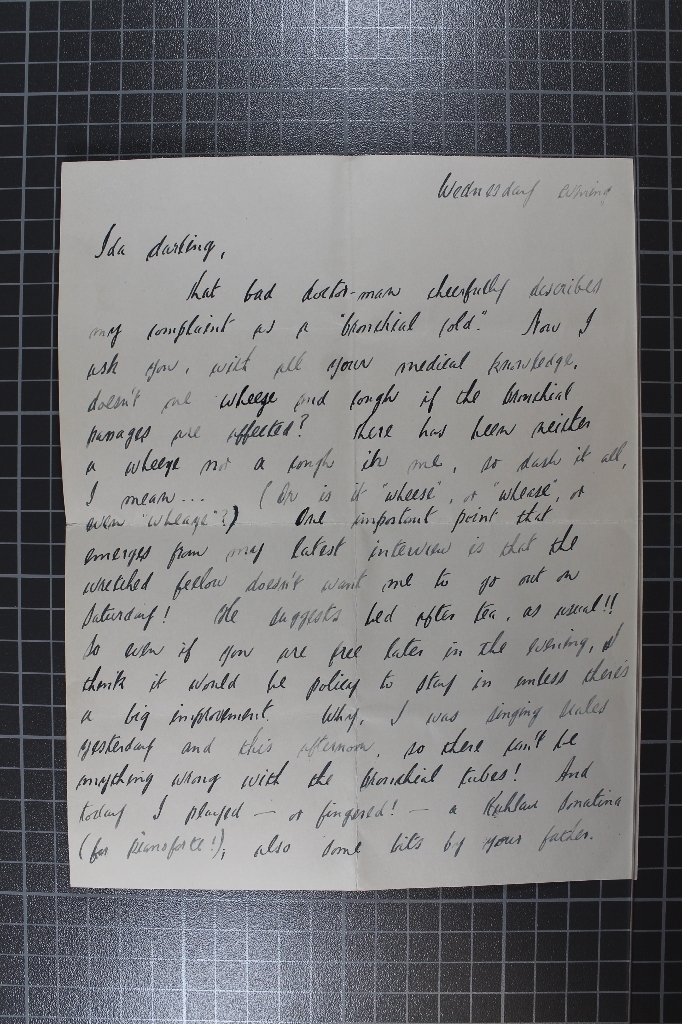 Wednesday evening
Ida darling,
that bad doctor-man cheerfully describes
my complaint as a "bronchial cold". Now I
ask you, with all your medical knowledge,
doesn't one wheeze and cough if the bronchial
passages are affected? There has been neither
a wheeze nor a cough in me, so dash it all,
I mean... (Or is it "wheese", or "whease", or
even "wheaze"?) One important point that
emerges from my latest interview is that the
wretched fellow doesn't want me to go out on
Saturday! He suggests bed after tea, as usual!!
So even if you are free later in the evening, I
think it would be policy to stay in unless there's
a big improvement. Why, I was singing scales
yesterday and this afternoon, so there can't be
anything wrong with the bronchial tubes! And
today I played — or fingered! — a Kuhlau Sonatina
(for pianoforte!), also some bits by your father.